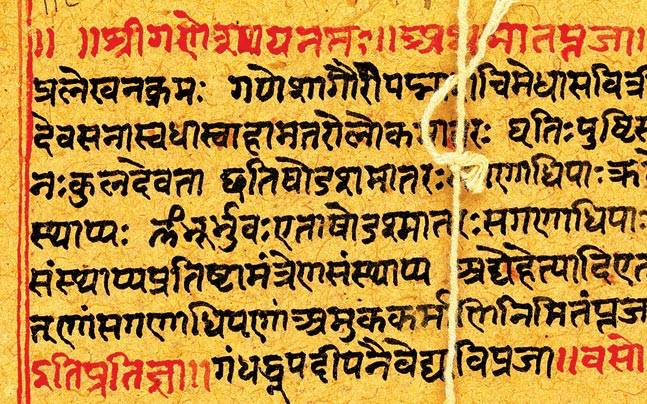 ॥ ॥श्रीगणेशायनमः॥अथ मातृपूजा॥
प्रलेखनक्रमः गणेशागौरीपद्मा चीमेधासवित्री
देवसेनास्वधास्वाहामातरोलोकमातरः धृतिःपुष्टिस
नःकुलदेवता धृतिषोडशमातरः गणाधिपाः
स्थाप्यः भूर्भुवःएताषोडशमातरःसगणाधिपाः
संस्थाप्यप्रतिष्ठामंत्रेणसंस्थाप्य अद्येहेत्यादिएत
तृणांसगणाधिपणां अमुककर्मणिनिमितंपूज
इतिप्रतिज्ञा॥गंधधूपदीपनैवेद्य विप्रजा॥वसो